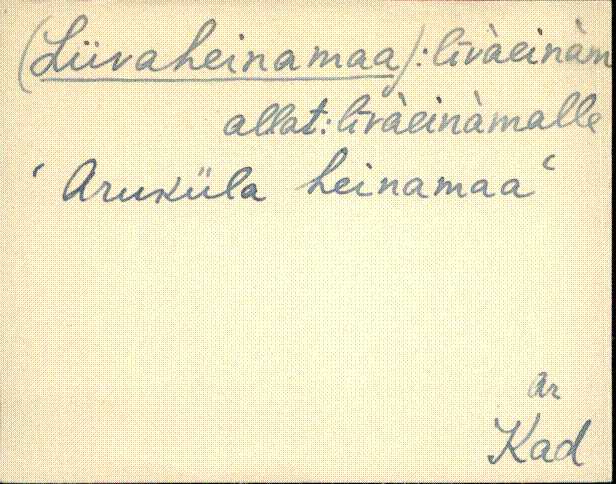 (Liivaheinamaa): līvàeinàm
allat: līvàeinàmalle
‘Aruküla heinamaa‘
Ar
Kad